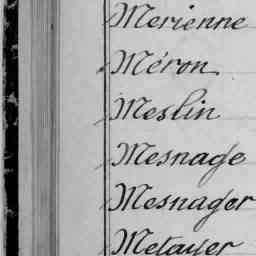 Merienne
Méron
Meslin
Mesnage
Mesnager
Metayer